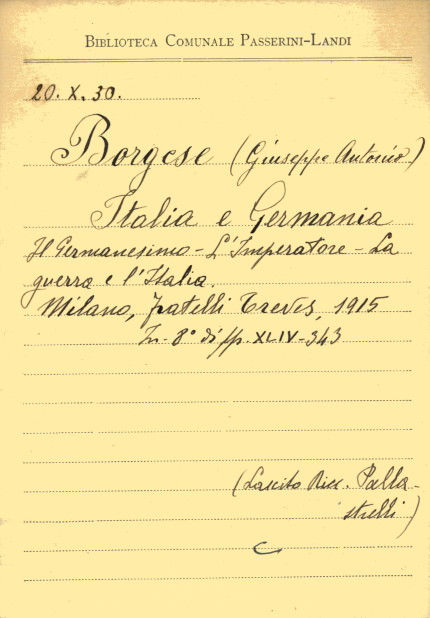 BIBLIOTECA COMUNALE PASSERINI-LANDI
20. X. 30.
Borgese (Giuseppe Antonio)
Italia e Germania
Il Germanesimo - L'Imperatore - La
guerra e l'Italia.
Milano, fratelli Treves, 1915
In-8° di pp. XLIV-343
(Lascito Ricc. Palla-
strelli)